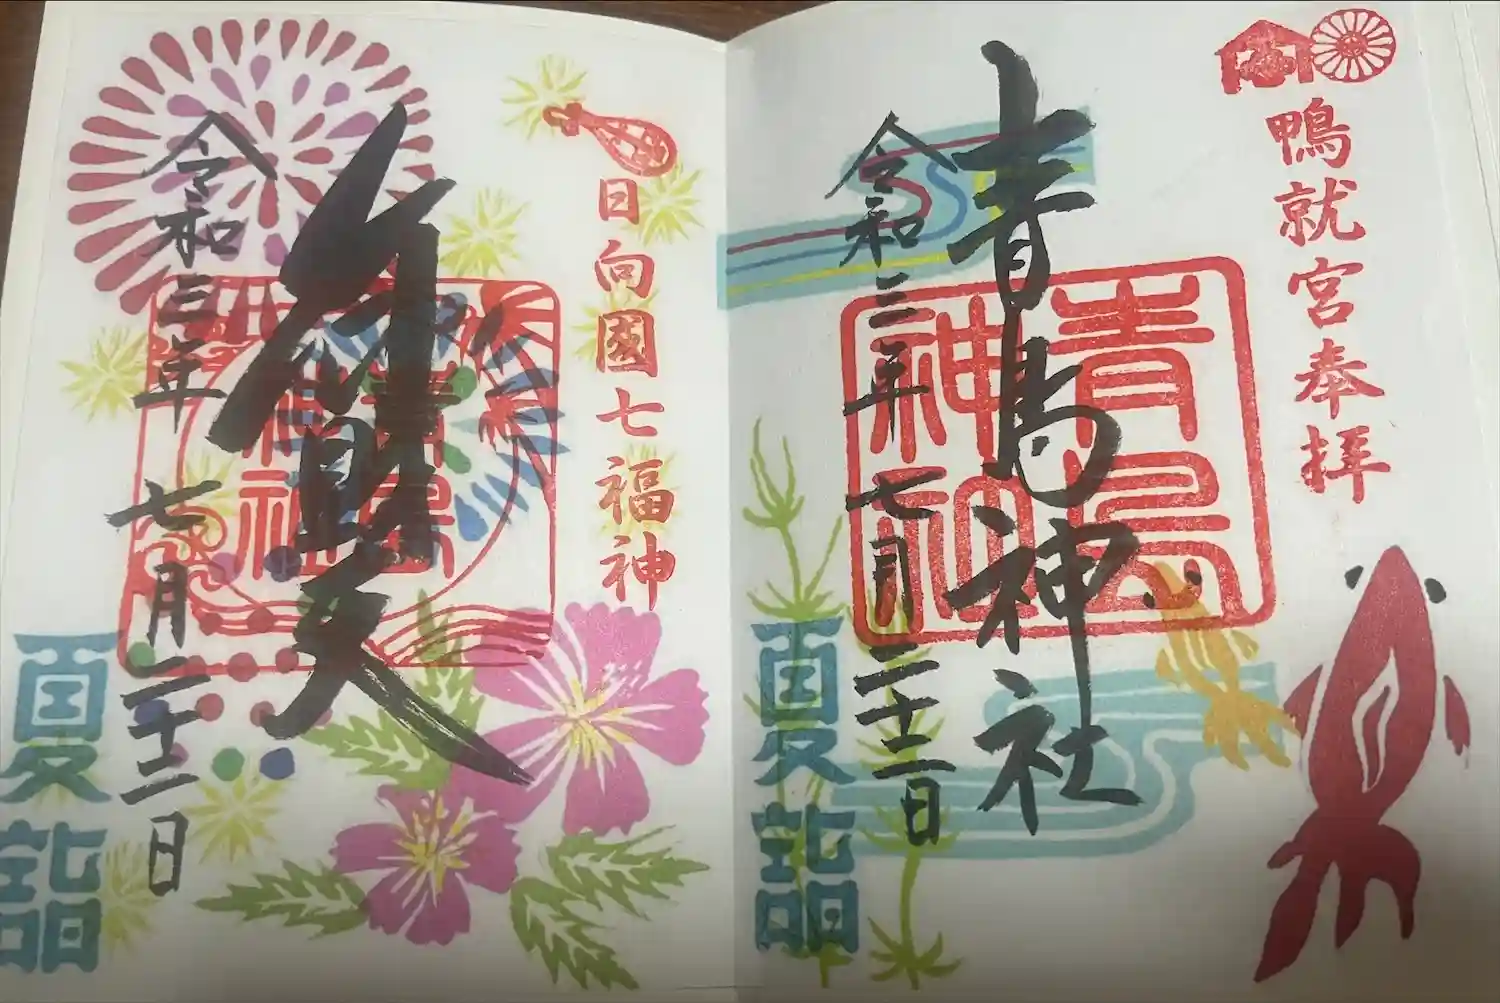 鴨就宮奉拝
青島神社
青島
神社
令和三年七月二十二日
夏詣
日向國七福神
弁財天
令和三年七月二十二日
夏詣